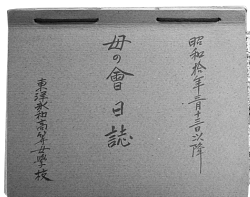 昭和拾年三月十三日以降
母の會日誌
東洋英和高等女學校